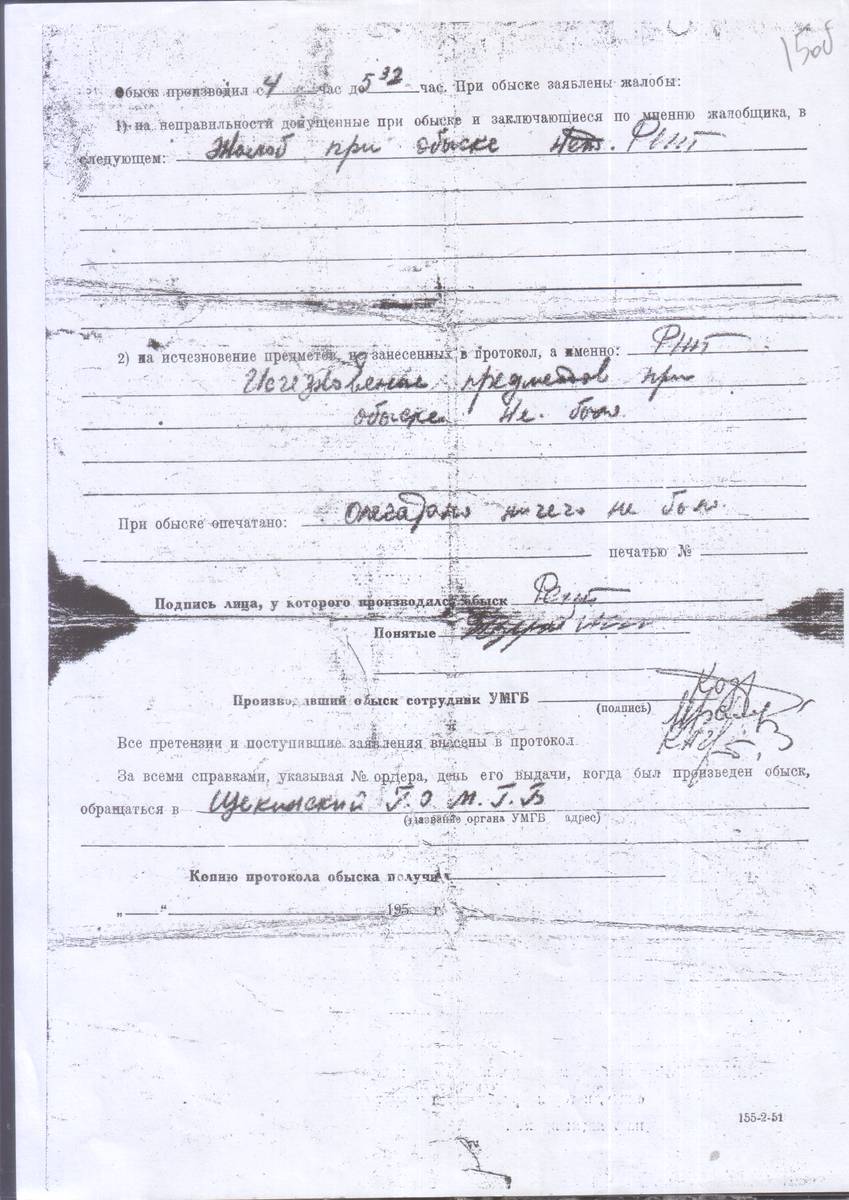 150об
Обыск производил с 4 час до 5 32 час. При обыске заявлены жалобы:
1) на неправильности допущенные при обыске и заключающиеся по мнению жалобщика, в
следующем: Жалоб при обыске нет.
2) на исчезновение предметов, не занесенных в протокол, а именно:
Исчезновение предметов при
обыске не было
При обыске опечатано: Опечатано ничего не было
печатью №
Подпись лица, у которого производился обыск
Понятые
Производивший обыск сотрудник УМГБ
(подпись)
Все претензии и поступившие заявления внесены в протокол
За всеми справками, указывая № ордера, день его выдачи, когда был произведен обыск,
обращаться в Щекинский Г.О М.Г.Б
(название органа УМГБ адрес)
Копию протокола обыска получил
„ “ 195 г
155-2-51